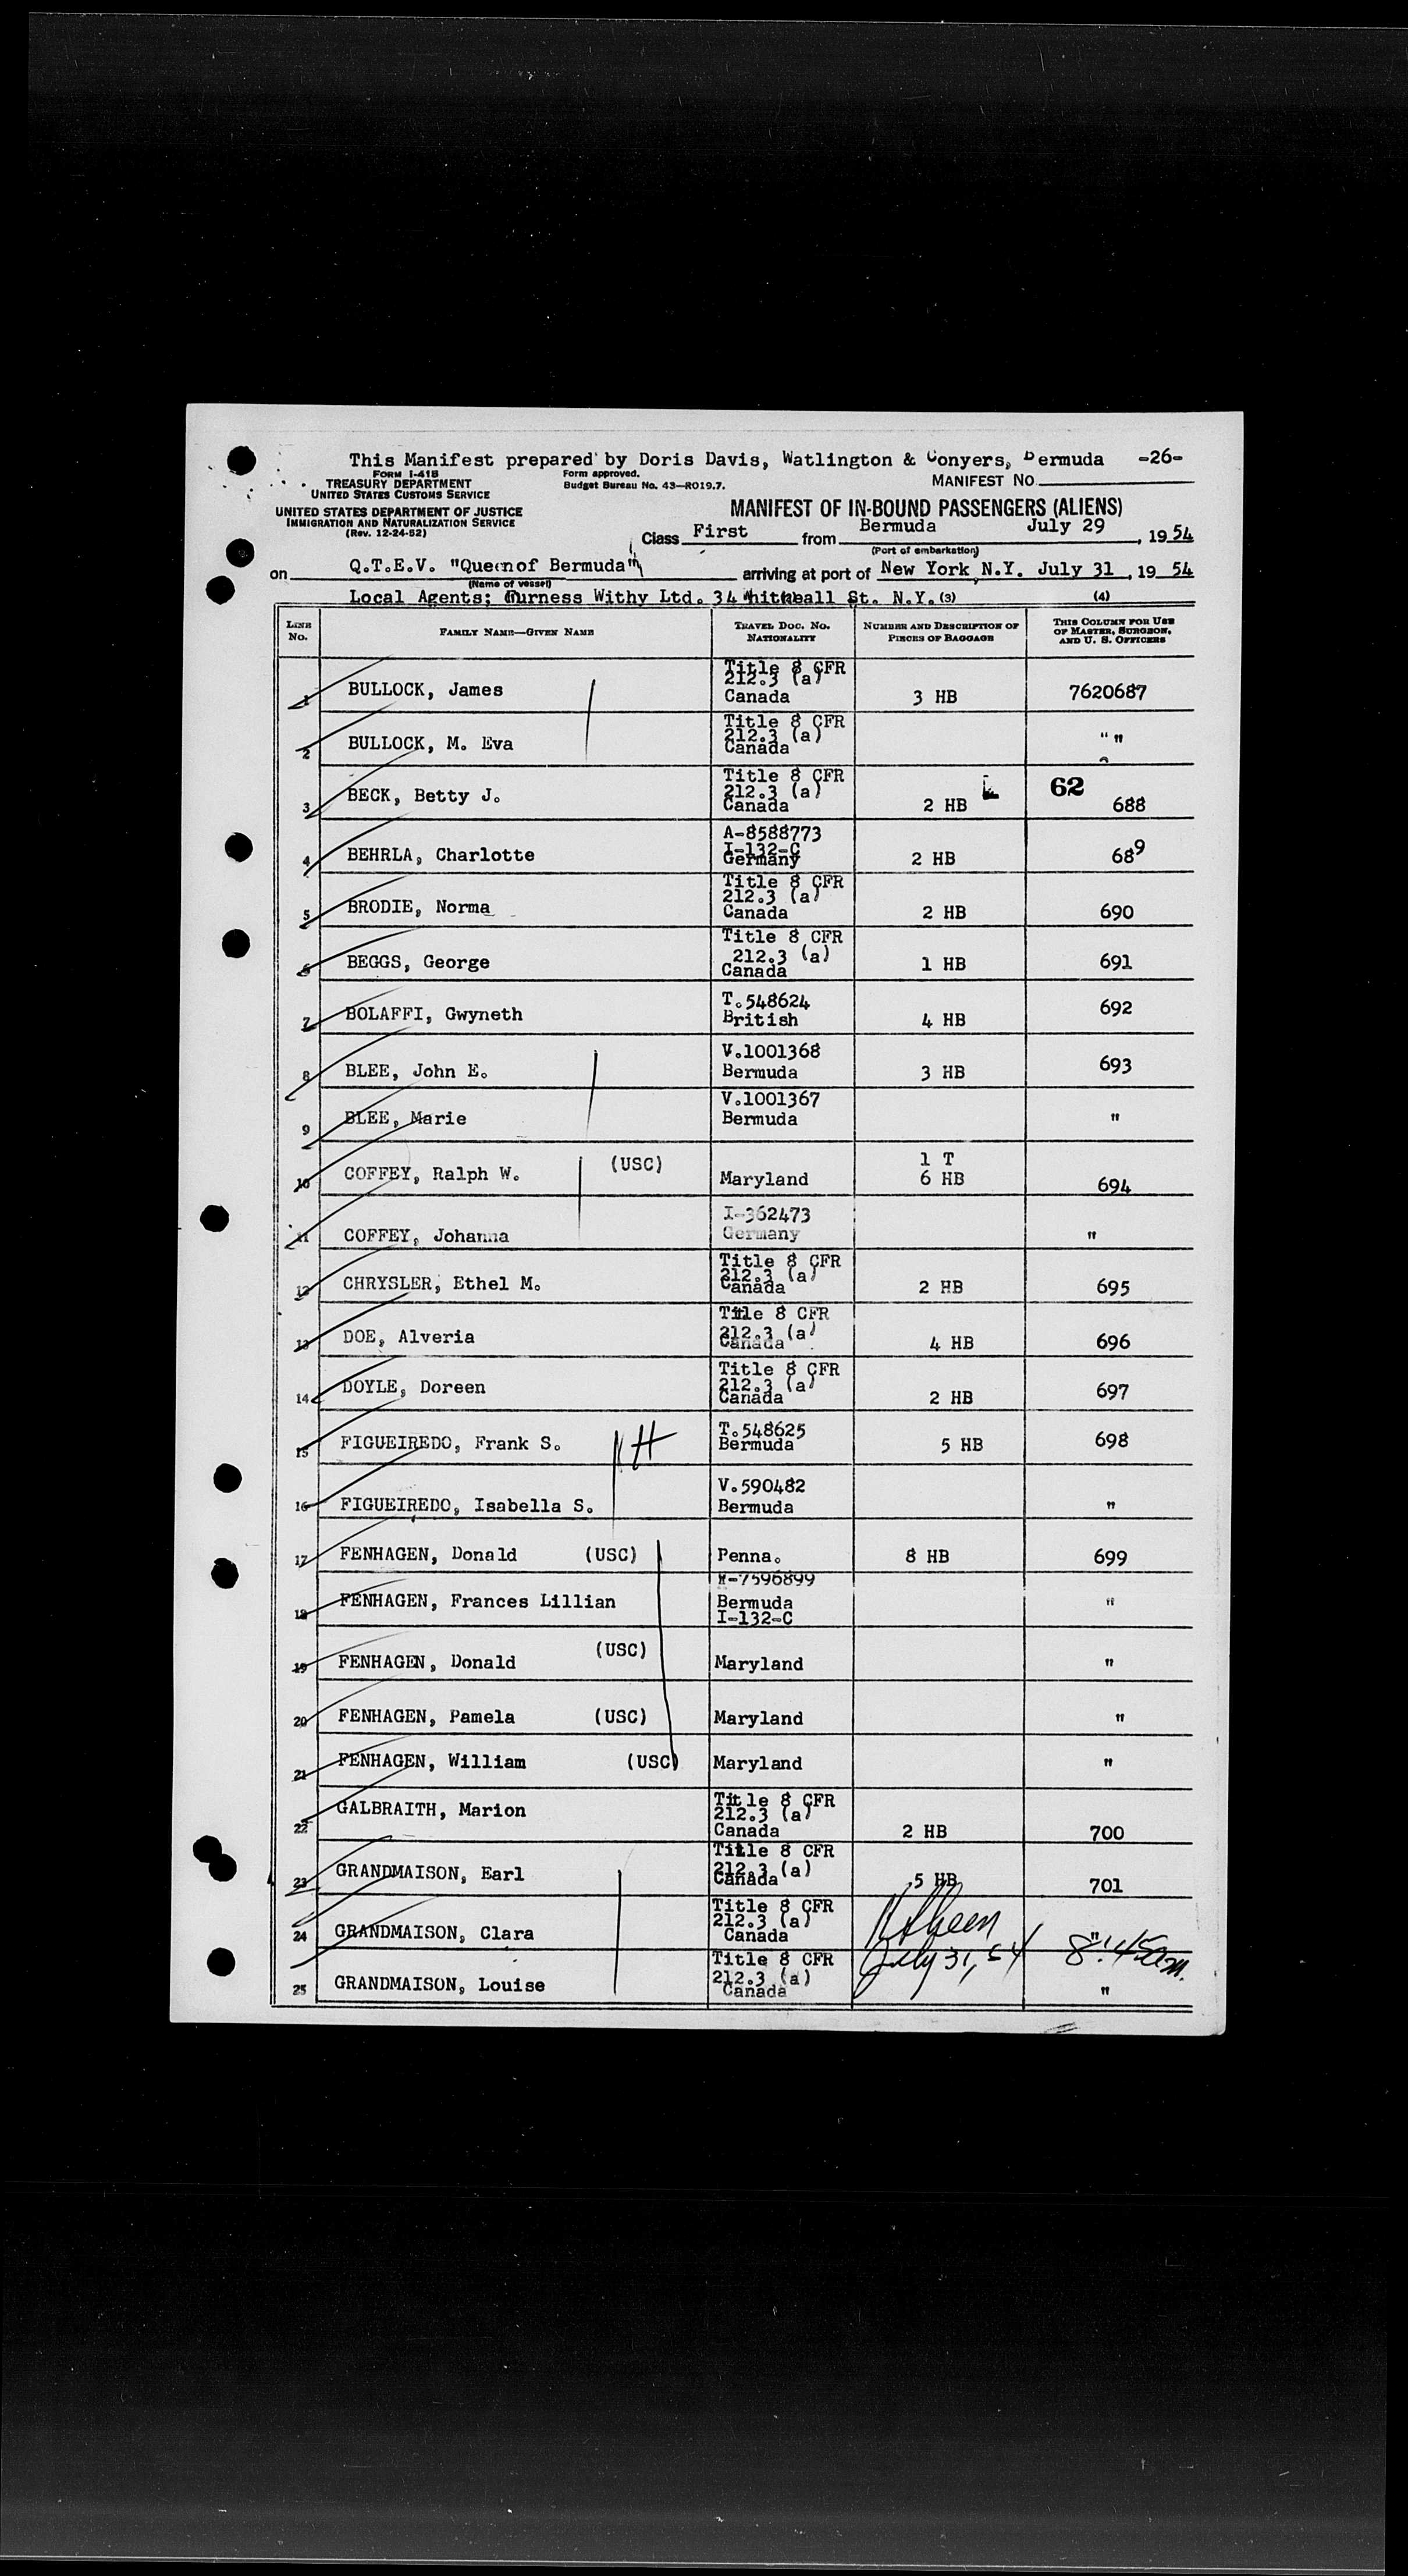 This Manifest prepared by Doris Davis, Watlington & Conyers, Bermuda -26-
FORM I-418
TREASURY DEPARTMENT
UNITED STATES CUSTOMS SERVICE
Form approved.
Budget Bureau No. 43—R019.7.
MANIFEST NO.
UNITED STATES DEPARTMENT OF JUSTICE
IMMIGRATION AND NATURALIZATION SERVICE
(Rev. 12-24-52)
MANIFEST OF IN-BOUND PASSENGERS (ALIENS)
Class First from Bermuda July 29, 1954
(Port of embarkation)
on Q.T.E.V. "Queen of Bermuda" arriving at port of New York, N.Y. July 31, 1954
(Name of vessel)
Local Agents; Furness Withy Ltd. 34 Whitehall St. N.Y. (3) (4)
LINE No. FAMILY NAME—GIVEN NAME TRAVEL DOC. NO. NATIONALITY NUMBER AND DESCRIPTION OF PIECES OF BAGGAGE THIS COLUMN FOR USE OF MASTER, SURGEON, AND U. S. OFFICERS
1 BULLOCK, James Title 8 CFR 212.3 (a) Canada 3 HB 7620687
2 BULLOCK, M. Eva Title 8 CFR 212.3 (a) Canada " "
3 BECK, Betty J. Title 8 CFR 212.3 (a) Canada 2 HB 62 688
4 BEHRLA, Charlotte A-8588773 I-132-C Germany 2 HB 689
5 BRODIE, Norma Title 8 CFR 212.3 (a) Canada 2 HB 690
6 BEGGS, George Title 8 CFR 212.3 (a) Canada 1 HB 691
7 BOLAFFI, Gwyneth T.548624 British 4 HB 692
8 BLEE, John E. V.1001368 Bermuda 3 HB 693
9 BLEE, Marie V.1001367 Bermuda "
10 COFFEY, Ralph W. (USC) Maryland 1 T 6 HB 694
11 COFFEY, Johanna I-362473 Germany "
12 CHRYSLER, Ethel M. Title 8 CFR 212.3 (a) Canada 2 HB 695
13 DOE, Alveria Title 8 CFR 212.3 (a) Canada 4 HB 696
14 DOYLE, Doreen Title 8 CFR 212.3 (a) Canada 2 HB 697
15 FIGUEIREDO, Frank S. H T.548625 Bermuda 5 HB 698
16 FIGUEIREDO, Isabella S. V.590482 Bermuda "
17 FENHAGEN, Donald (USC) Penna. 8 HB 699
18 FENHAGEN, Frances Lillian -7596899 Bermuda I-132-C "
19 FENHAGEN, Donald (USC) Maryland "
20 FENHAGEN, Pamela (USC) Maryland "
21 FENHAGEN, William (USC) Maryland "
22 GALBRAITH, Marion Title 8 CFR 212.3 (a) Canada 2 HB 700
23 GRANDMAISON, Earl Title 8 CFR 212.3 (a) Canada 5 HB 701
24 GRANDMAISON, Clara Title 8 CFR 212.3 (a) Canada "
July 31, 54 8:45am.
25 GRANDMAISON, Louise Title 8 CFR 212.3 (a) Canada "